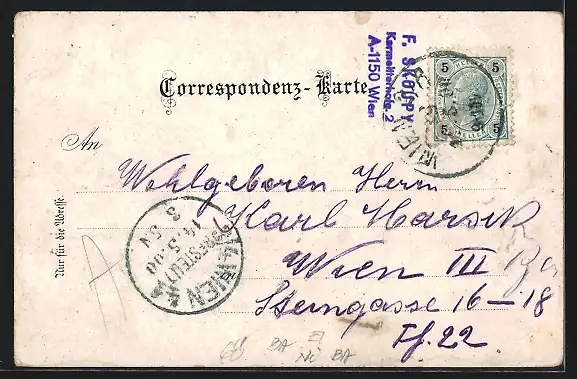 Correspondenz-Karte
F. SKOUPY
Karmeliterhofg. 2
A-1150 Wien
5 5
5 5
WIEN
An
Wohlgeboren Herrn
Karl Harsik
Wien III Bez
Steingasse 16-18
Th. 22.
Nur für die Adresse.
WIEN
BESTELLT
14.5.00
BA
Ni BA